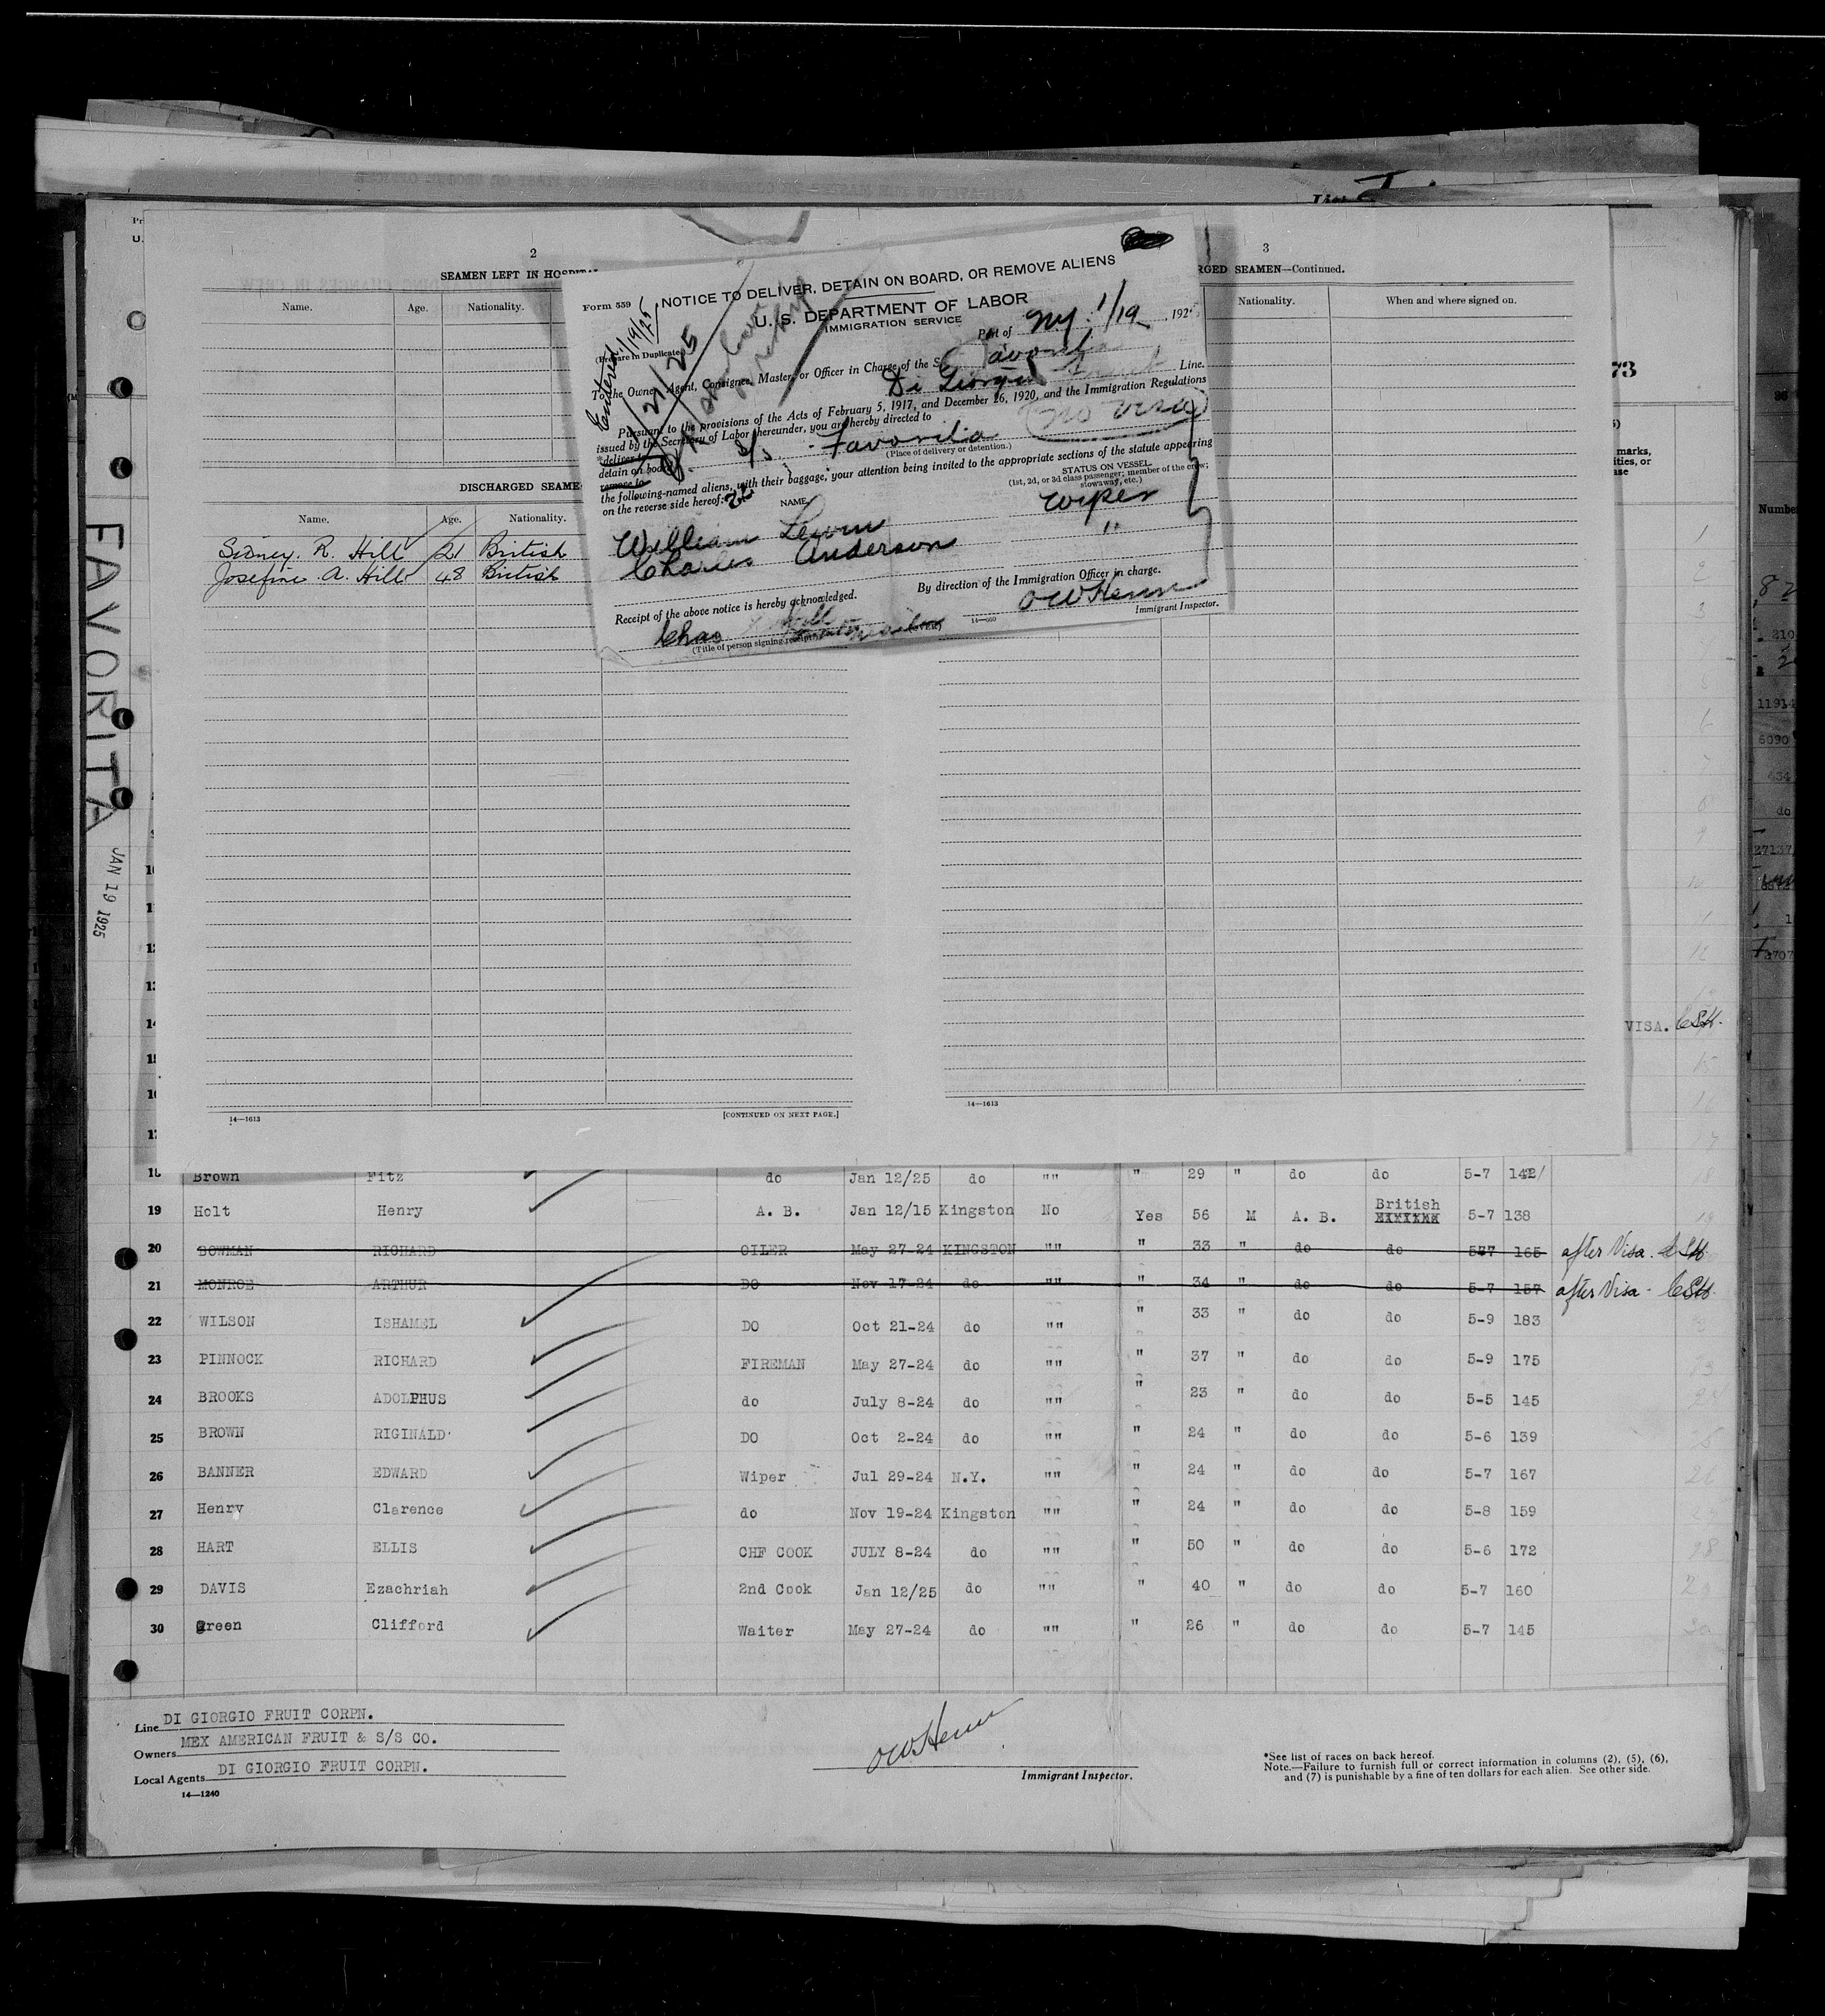 2
SEAMEN LEFT IN
Name. Age. Nationality.
DISCHARGED SEAME
Name. Age. Nationality.
Sidney. R. Hill 21 British
Josefine A. Hill 48 British
14—1613
[CONTINUED ON NEXT PAGE.]
Form 559
NOTICE TO DELIVER, DETAIN ON BOARD, OR REMOVE ALIENS
U. S. DEPARTMENT OF LABOR
IMMIGRATION SERVICE
Entered 1/19/25
1/21/25
(Prepare in Duplicate)
Port of NY. 1/19, 192
To the Owner, Agent, Consignee, Master, or Officer in Charge of the S
Favorita
Di Giorgio Fruit Line.
Pursuant to the provisions of the Acts of February 5, 1917, and December 26, 1920, and the Immigration Regulations
issued by the Secretary of Labor thereunder, you are hereby directed to
no visa
*deliver to
detain on board S/S Favorita
remove to
(Place of delivery or detention.)
the following-named aliens, with their baggage, your attention being invited to the appropriate sections of the statute appearing
on the reverse side hereof:
NAME
STATUS ON VESSEL
(1st, 2d, or 3d class passenger; member of the crew;
stowaway, etc.)
William Lewin wiper
Charles Anderson "
By direction of the Immigration Officer in charge.
Receipt of the above notice is hereby acknowledged.
OWHenn
Immigrant Inspector.
Chas
(Title of person signing receipt)
14—560
3
RGED SEAMEN—Continued.
Nationality. When and where signed on.
14—1613
73
marks,
ities, or
Number
11914
6090
434
do
27137
FAVORITA
JAN 19 1925
VISA. CSH.
18 Brown Fitz do Jan 12/25 do "" " 29 " do do 5-7 142/
19 Holt Henry A. B. Jan 12/15 Kingston No Yes 56 M A. B. British 5-7 138
20 BOWMAN RICHARD OILER May 27-24 KINGSTON "" " 33 " do do 5-7 165 after Visa. CSH
21 MONROE ARTHUR DO Nov 17-24 do "" " 34 " do do 5-7 157 after Visa - CSH.
22 WILSON ISHAMEL DO Oct 21-24 do "" " 33 " do do 5-9 183
23 PINNOCK RICHARD FIREMAN May 27-24 do "" " 37 " do do 5-9 175
24 BROOKS ADOLPHUS do July 8-24 do "" " 23 " do do 5-5 145
25 BROWN RIGINALD DO Oct 2-24 do "" " 24 " do do 5-6 139
26 BANNER EDWARD Wiper Jul 29-24 N.Y. "" " 24 " do do 5-7 167
27 Henry Clarence do Nov 19-24 Kingston "" " 24 " do do 5-8 159
28 HART ELLIS CHF COOK JULY 8-24 do "" " 50 " do do 5-6 172
29 DAVIS Ezachriah 2nd Cook Jan 12/25 do "" " 40 " do do 5-7 160
30 Green Clifford Waiter May 27-24 do "" " 26 " do do 5-7 145
Line DI GIORGIO FRUIT CORPN.
Owners MEX AMERICAN FRUIT & S/S CO.
Local Agents DI GIORGIO FRUIT CORPN.
14—1240
OWHenn
Immigrant Inspector.
*See list of races on back hereof.
Note.—Failure to furnish full or correct information in columns (2), (5), (6),
and (7) is punishable by a fine of ten dollars for each alien. See other side.